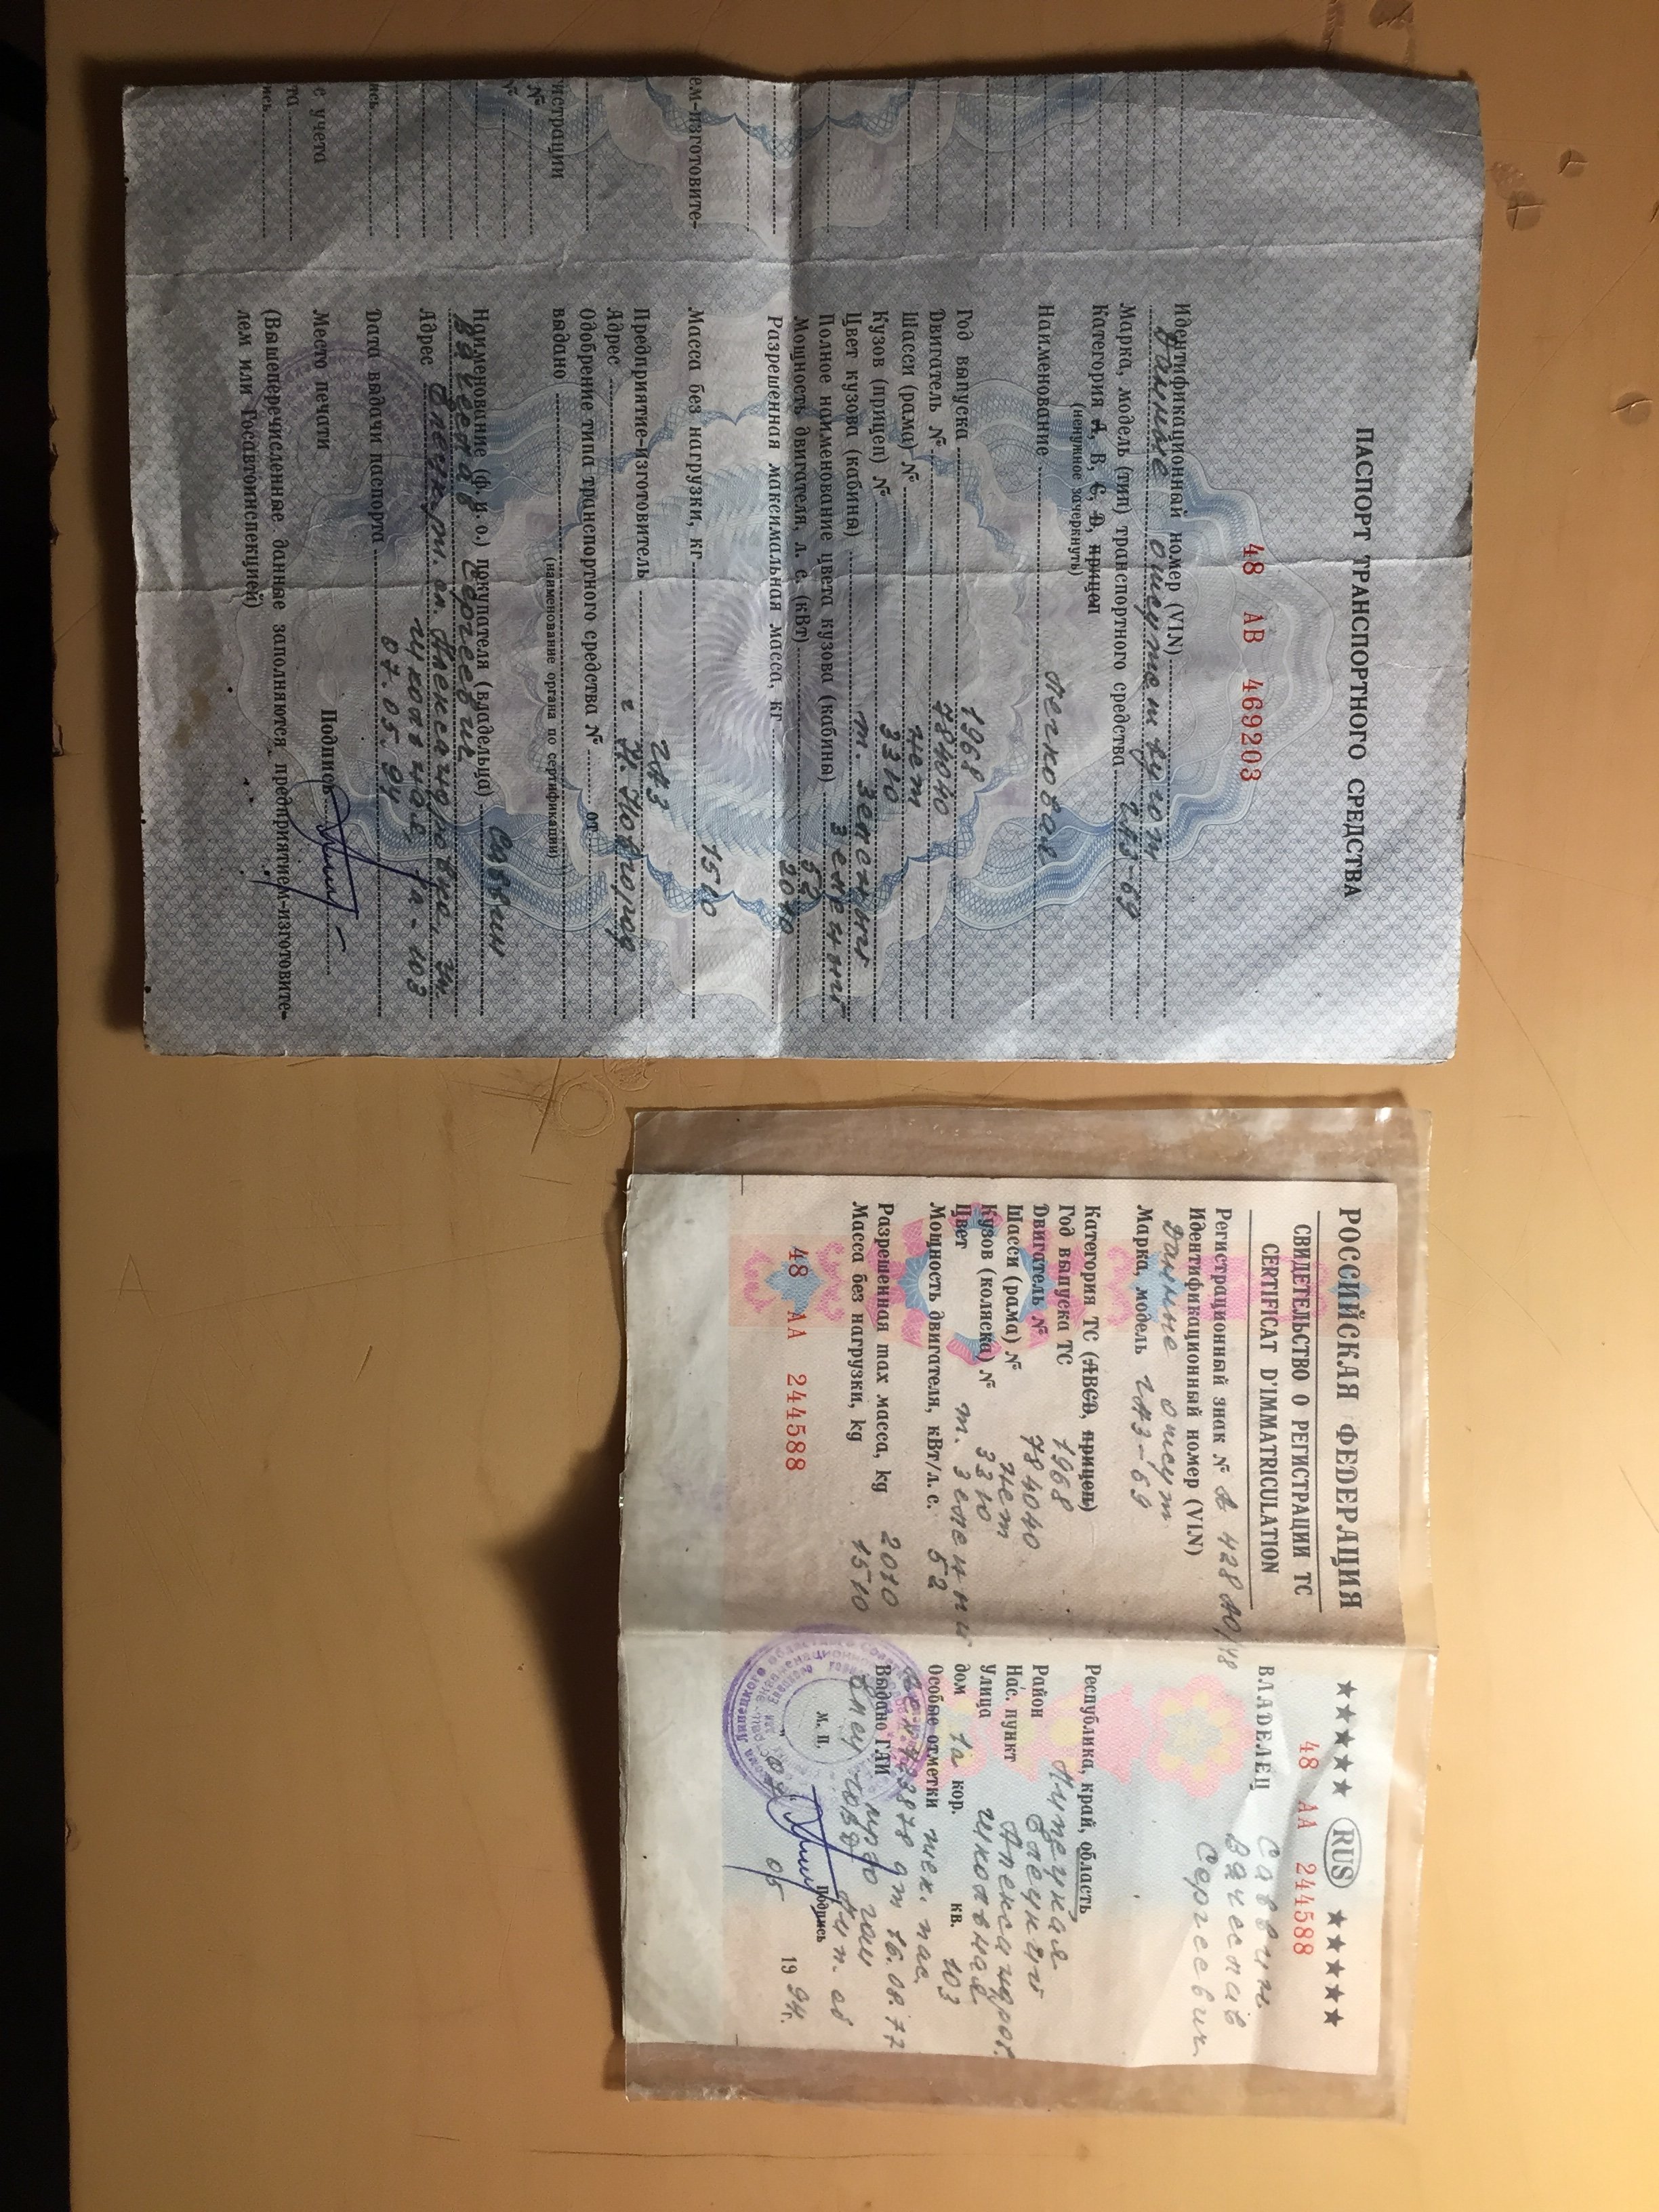 ПАСПОРТ ТРАНСПОРТНОГО СРЕДСТВА
48 АВ 469203
Идентификационный номер (VIN)
данные отсутствуют
Марка, модель (тип) транспортного средства ГАЗ-69
Категория А, В, С, D, прицеп
(ненужное зачеркнуть)
Наименование легковая
Год выпуска 1968
Двигатель № 784040
Шасси (рама) № нет
Кузов (прицеп) № 3310
Цвет кузова (кабины) т. зеленый
Полное наименование цвета кузова (кабины) зеленый
Мощность двигателя, л. с. (кВт) 52
Разрешенная максимальная масса, кг 2010
Масса без нагрузки, кг 1510
Предприятие-изготовитель ГАЗ
Адрес г. Н. Новгород
Одобрение типа транспортного средства № от
выдано
(наименование органа по сертификации)
Наименование (ф. и. о.) покупателя (владельца) Саввин
Вячеслав Сергеевич
Адрес Елецкий Александровка ул.
Школьная 1а-103
Дата выдачи паспорта 07.05.94
Место печати Подпись
(Вышеперечисленные данные заполняются предприятием-изготовите-
лем или Госавтоинспекцией)
ем-изготовите-
истрации
№
№
ись
с учета
та
ись
РОССИЙСКАЯ ФЕДЕРАЦИЯ
СВИДЕТЕЛЬСТВО О РЕГИСТРАЦИИ ТС
CERTIFICAT D'IMMATRICULATION
Регистрационный знак № А 428 АО/48
Идентификационный номер (VIN)
Данные отсут
Марка, модель ГАЗ-69
Категория ТС (ABCD, прицеп)
Год выпуска ТС 1968
Двигатель № 784040
Шасси (рама) № нет
Кузов (коляска) № 3310
Цвет т. зеленый
Мощность двигателя, кВт/л. с. 52
Разрешенная max масса, kg 2010
Масса без нагрузки, kg 1510
48 АА 244588
★★★★★ RUS ★★★★★
48 АА 244588
ВЛАДЕЛЕЦ Саввин
Вячеслав
Сергеевич
Республика, край, область
Липецкая
Район Елецкий
Нас. пункт Александров.
Улица Школьная
дом 1а кор. кв. 103
Особые отметки тех. пас.
от 16.08.77
Выдано ГАИ
Елец
М. П. Подпись
07 05 1994 г.